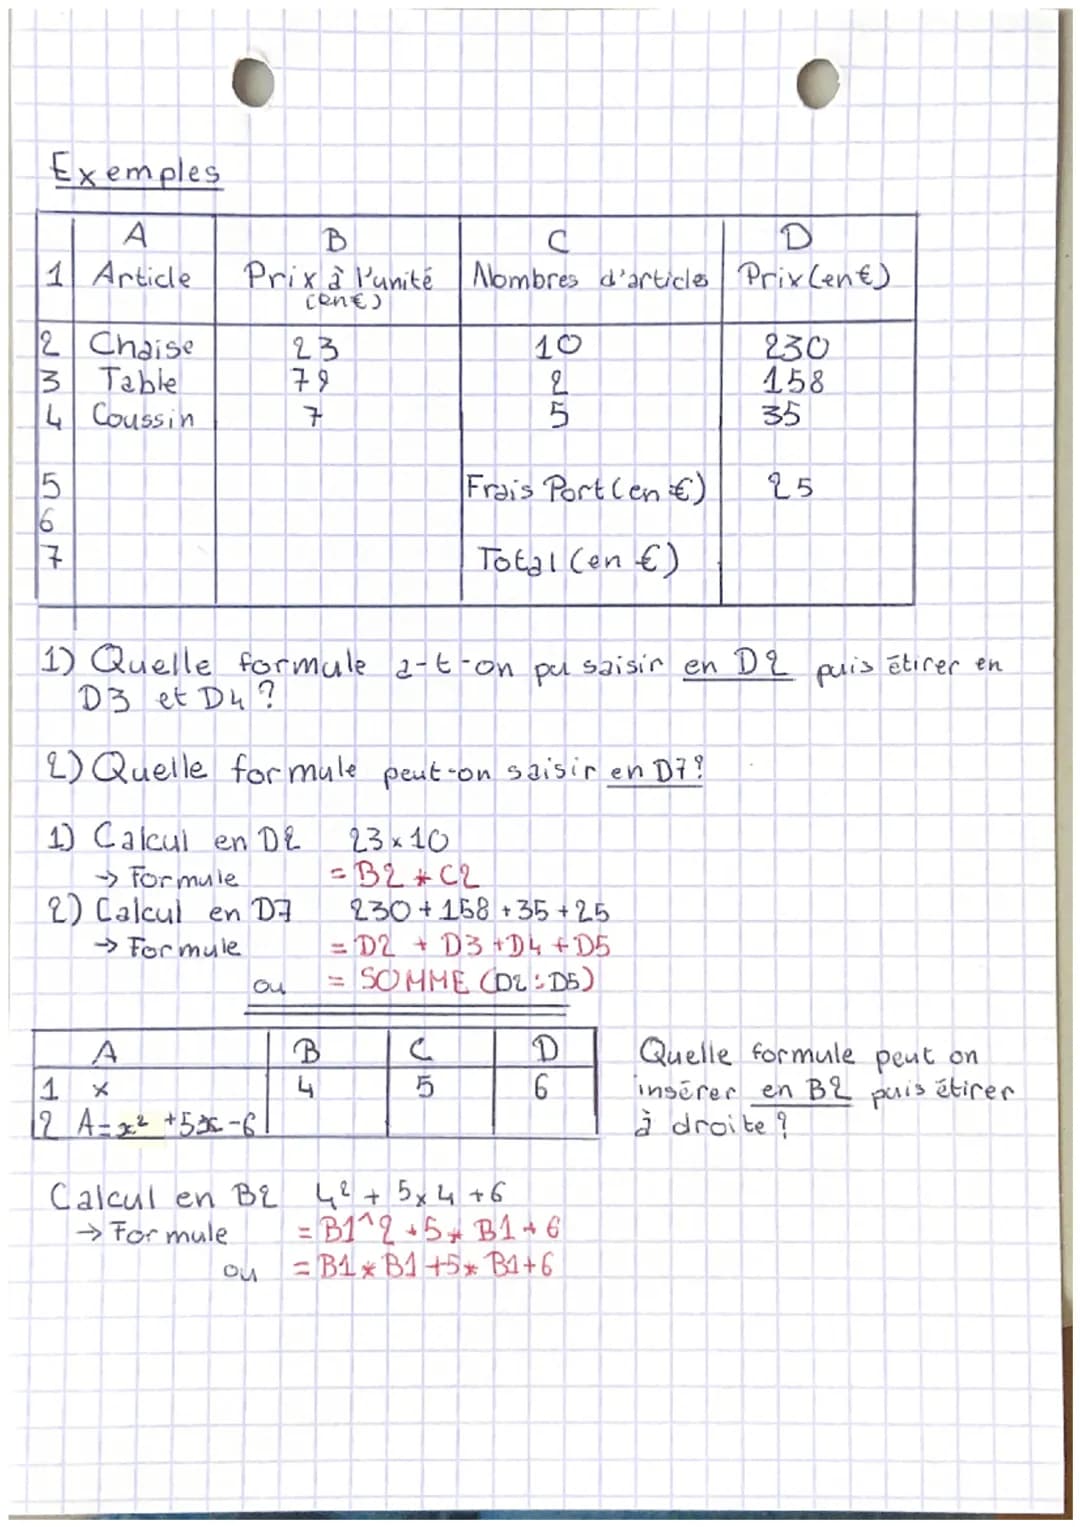 Exemples
A B C D
1 Article Prix à l'unité (en €) Nombres d'articles Prix (en €)
2 Chaise 23 10 230
3 Table 79 2 158
4 Coussin 7 5 35
5 Frais Port (en €) 25
6
7 Total (en €)
1) Quelle formule a-t-on pu saisir en D2 puis étirer en
D3 et D4 ?
2) Quelle formule peut-on saisir en D7 ?
1) Calcul en D2 23 × 10
→ Formule = B2 * C2
2) Calcul en D7 230 + 158 + 35 + 25
→ Formule = D2 + D3 + D4 + D5
ou = SOMME (D2 : D5)
A B C D
1 x 4 5 6
2 A = x² + 5x - 6
Quelle formule peut on
insérer en B2 puis étirer
à droite ?
Calcul en B2 4² + 5 × 4 + 6
→ Formule = B1^2 + 5 * B1 + 6
ou = B1 * B1 + 5 * B1 + 6